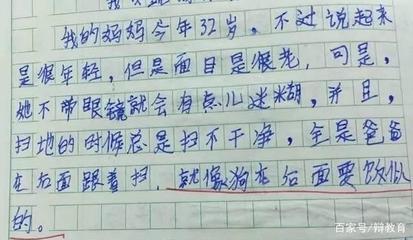 我的妈妈今年32岁，不过说起来
是很年轻，但是面目是很老，可是，
她不带眼镜就会有点儿迷糊，并且，
扫地的时候总是扫不干净，全是爸爸
在后面跟着扫，就像狗在后面要饭似
的。
百家号/辩教育